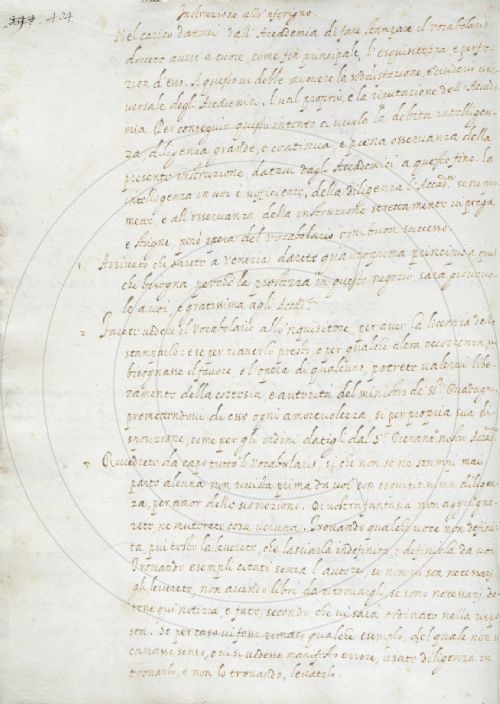 404
Instruzione all'Inferigno.
Nel carico datovi dall'Accademia di fare stampare il vocabolario
dovete avere a cuore, come fin principale, l'esquisitezza, e perfe-
zion d'esso. A questo vi debbe muovere la soddisfazione, e desiderio uni-
versale degli Accademici, l'util proprio, e la riputazione dell'Accade-
mia. Per conseguir questo intento ci vuole la debita intelligen-
za, diligenza grande, e continua, e piena osservanza della
presente instruzione datavi dagli Accademici a questo fine. La
intelligenza in voi è sufficiente, della diligenza l'Accad.a se ne pro-
mette, e all'osservanza della instruzione strettamente vi prega
e strigne, però spera del vocabolario con buon successo.
1 Arrivato che sarete a Venezia darete quanto prima principio a quel
che bisogna perché la prestezza in questo negozio sarà giovevo-
le a voi, e gratissima agli Accad.ci
2 Farete vedere il vocabolario all'Inquisitore, per aver la licenza dello
stamparlo: e se per riaverlo presto, e per qualche altra occorrenza, vi
bisognasse il favore, e l'opera di qualcuno, potrete valervi libe-
ramente della cortesia, e autorità del ministro de' SS.ri Guadagni,
promettendovi di esso ogni amorevolezza, sì per propria sua di-
sposizione, come per gli ordini datigli dal S.r nostro Accad.co
3 Rivedrete da capo tutto il vocabolario, sì che non se ne stampi mai
parte alcuna non rivista prima da voi con esquisitissima diligen-
za, per amor delle scorrezioni. Di vostra fantasia non aggiugne-
rete ne muterete cosa veruna. Trovando qualche voce non defini-
ta più tosto la leverete, che lasciarla indefinita, o definirla da voi.
Trovando esempli citati senza l'autore, se non ci son necessari
gli leverete, non avendo libri da ritrovargli, se sono necessari, da-
tene qui notizia, e fate, secondo, che vi sarà ordinato nella rispo-
sta. Se per caso vi fosse rimaso qualche esempio, del quale non si
cavasse senso, e vi si vedesse manifesto errore, usate diligenza in
trovarlo, e non lo trovando, levatelo.